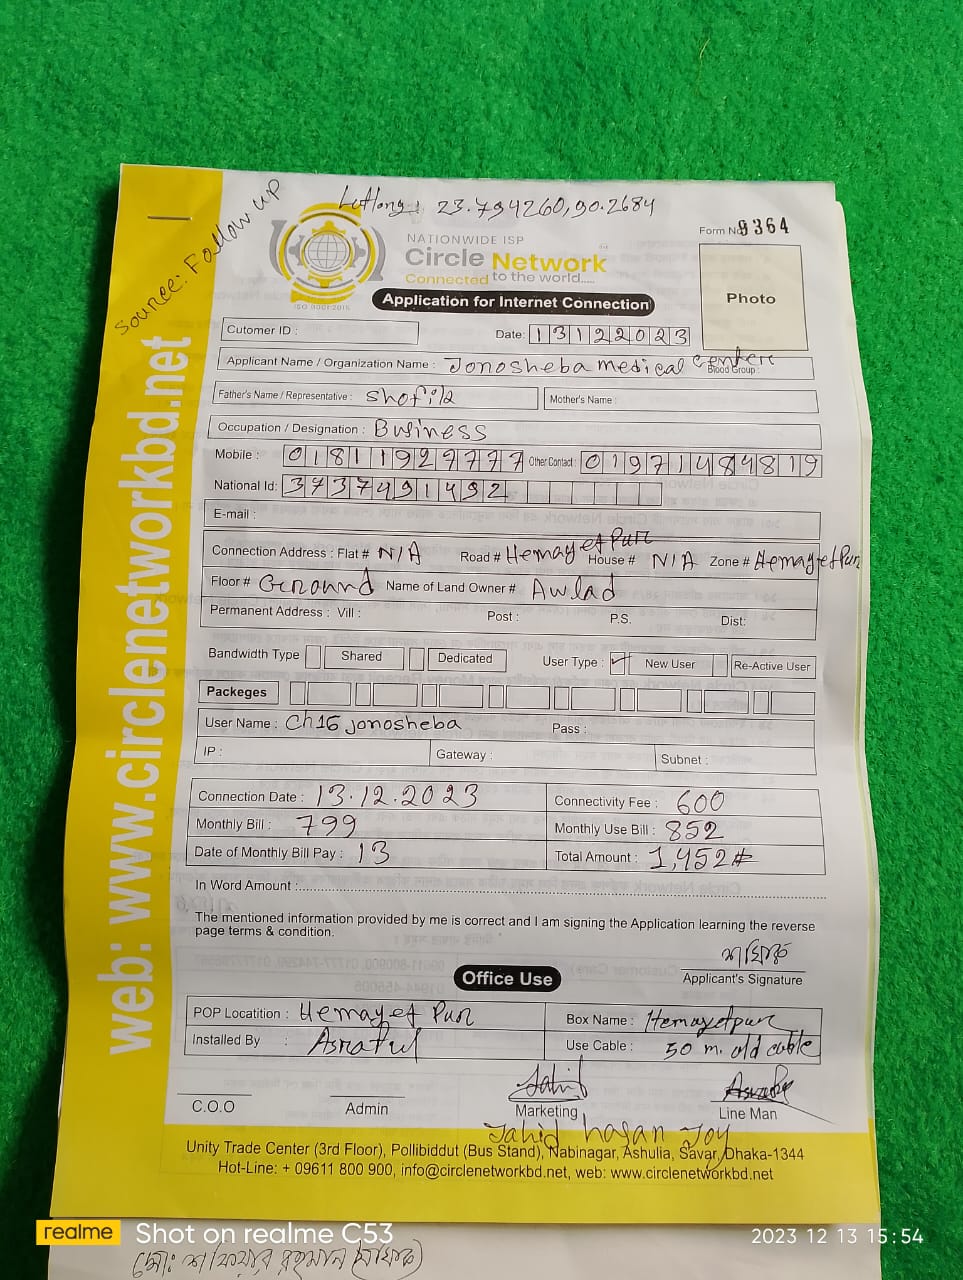 Source: Follow UP
Lutlong: 23.794260,90.2684
Form No 9364
NATIONWIDE ISP
Circle Network
Connected to the world.....
ISO 9001:2015
Application for Internet Connection
Photo
Cutomer ID :
Date: 13122023
Applicant Name / Organization Name : Jonosheba medical Centere
Blood Group :
Father's Name / Representative : Shofik
Mother's Name :
Occupation / Designation : Business
Mobile : 01811929777 Other Contact : 01971484819
National Id: 3737491492
E-mail :
Connection Address : Flat # N/A Road # Hemayet Pur House # N/A Zone # HemayetPur
Floor # Ground Name of Land Owner # Awlad
Permanent Address : Vill : Post : P.S. Dist:
Bandwidth Type Shared Dedicated User Type : ✓ New User Re-Active User
Packeges
User Name : Ch16 jonosheba Pass :
IP : Gateway : Subnet :
Connection Date : 13.12.2023 Connectivity Fee : 600
Monthly Bill : 799 Monthly Use Bill : 852
Date of Monthly Bill Pay : 13 Total Amount : 1,452#
In Word Amount :
The mentioned information provided by me is correct and I am signing the Application learning the reverse
page terms & condition.
Applicant's Signature
Office Use
POP Locatition : Hemayet Pur Box Name : Hemayetpur
Installed By : Asraful Use Cable : 50 m. old cable
Jahid
C.O.O Admin Marketing Line Man
Jahid hasan Joy
Unity Trade Center (3rd Floor), Pollibiddut (Bus Stand), Nabinagar, Ashulia, Savar, Dhaka-1344
Hot-Line: + 09611 800 900, info@circlenetworkbd.net, web: www.circlenetworkbd.net
web: www.circlenetworkbd.net
realme Shot on realme C53
2023 12 13 15:54